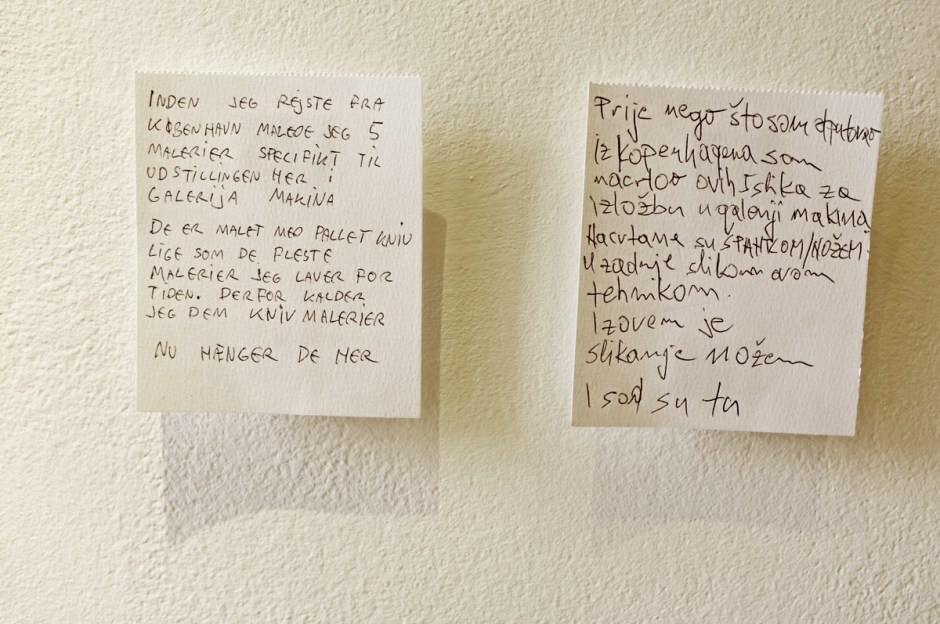 INDEN JEG REJSTE FRA
KØBENHAVN MALEDE JEG 5
MALERIER SPECIFIKT TIL
UDSTILLINGEN HER I
GALERIJA MAKINA
DE ER MALET MED PALLET KNIV
LIGE SOM DE FLESTE
MALERIER JEG LAVER FOR
TIDEN. DERFOR KALDER
JEG DEM KNIV MALERIER
NU HÆNGER DE HER
Prije nego što sam otputovao
iz kopenhagena sam
nacrtao ovih 5 slika za
izložbu u galeriji makina
Nacrtane su ŠPAHTLOM/NOŽEM.
U zadnje slikam ovom
tehnikom.
I zovem je
slikanje nožem
I sad su tu